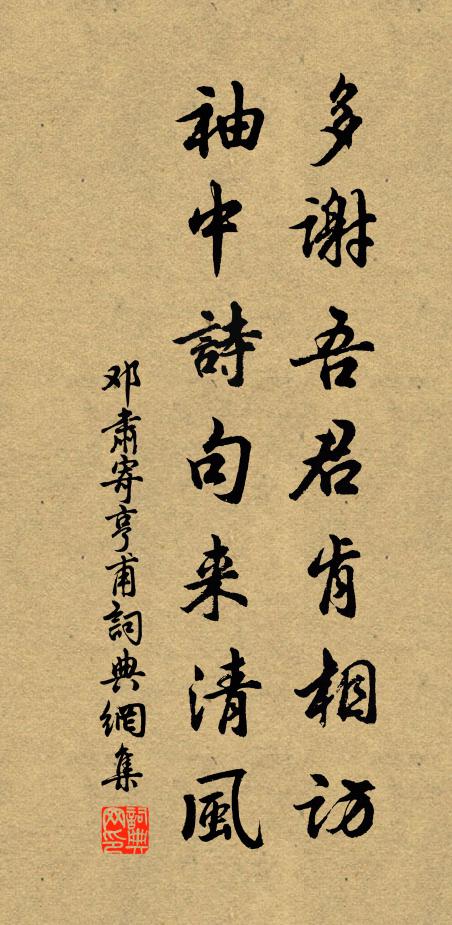 多谢吾君肯相访
袖中詩句来清風
邓肅寄亨甫詞典網集
詞典網印